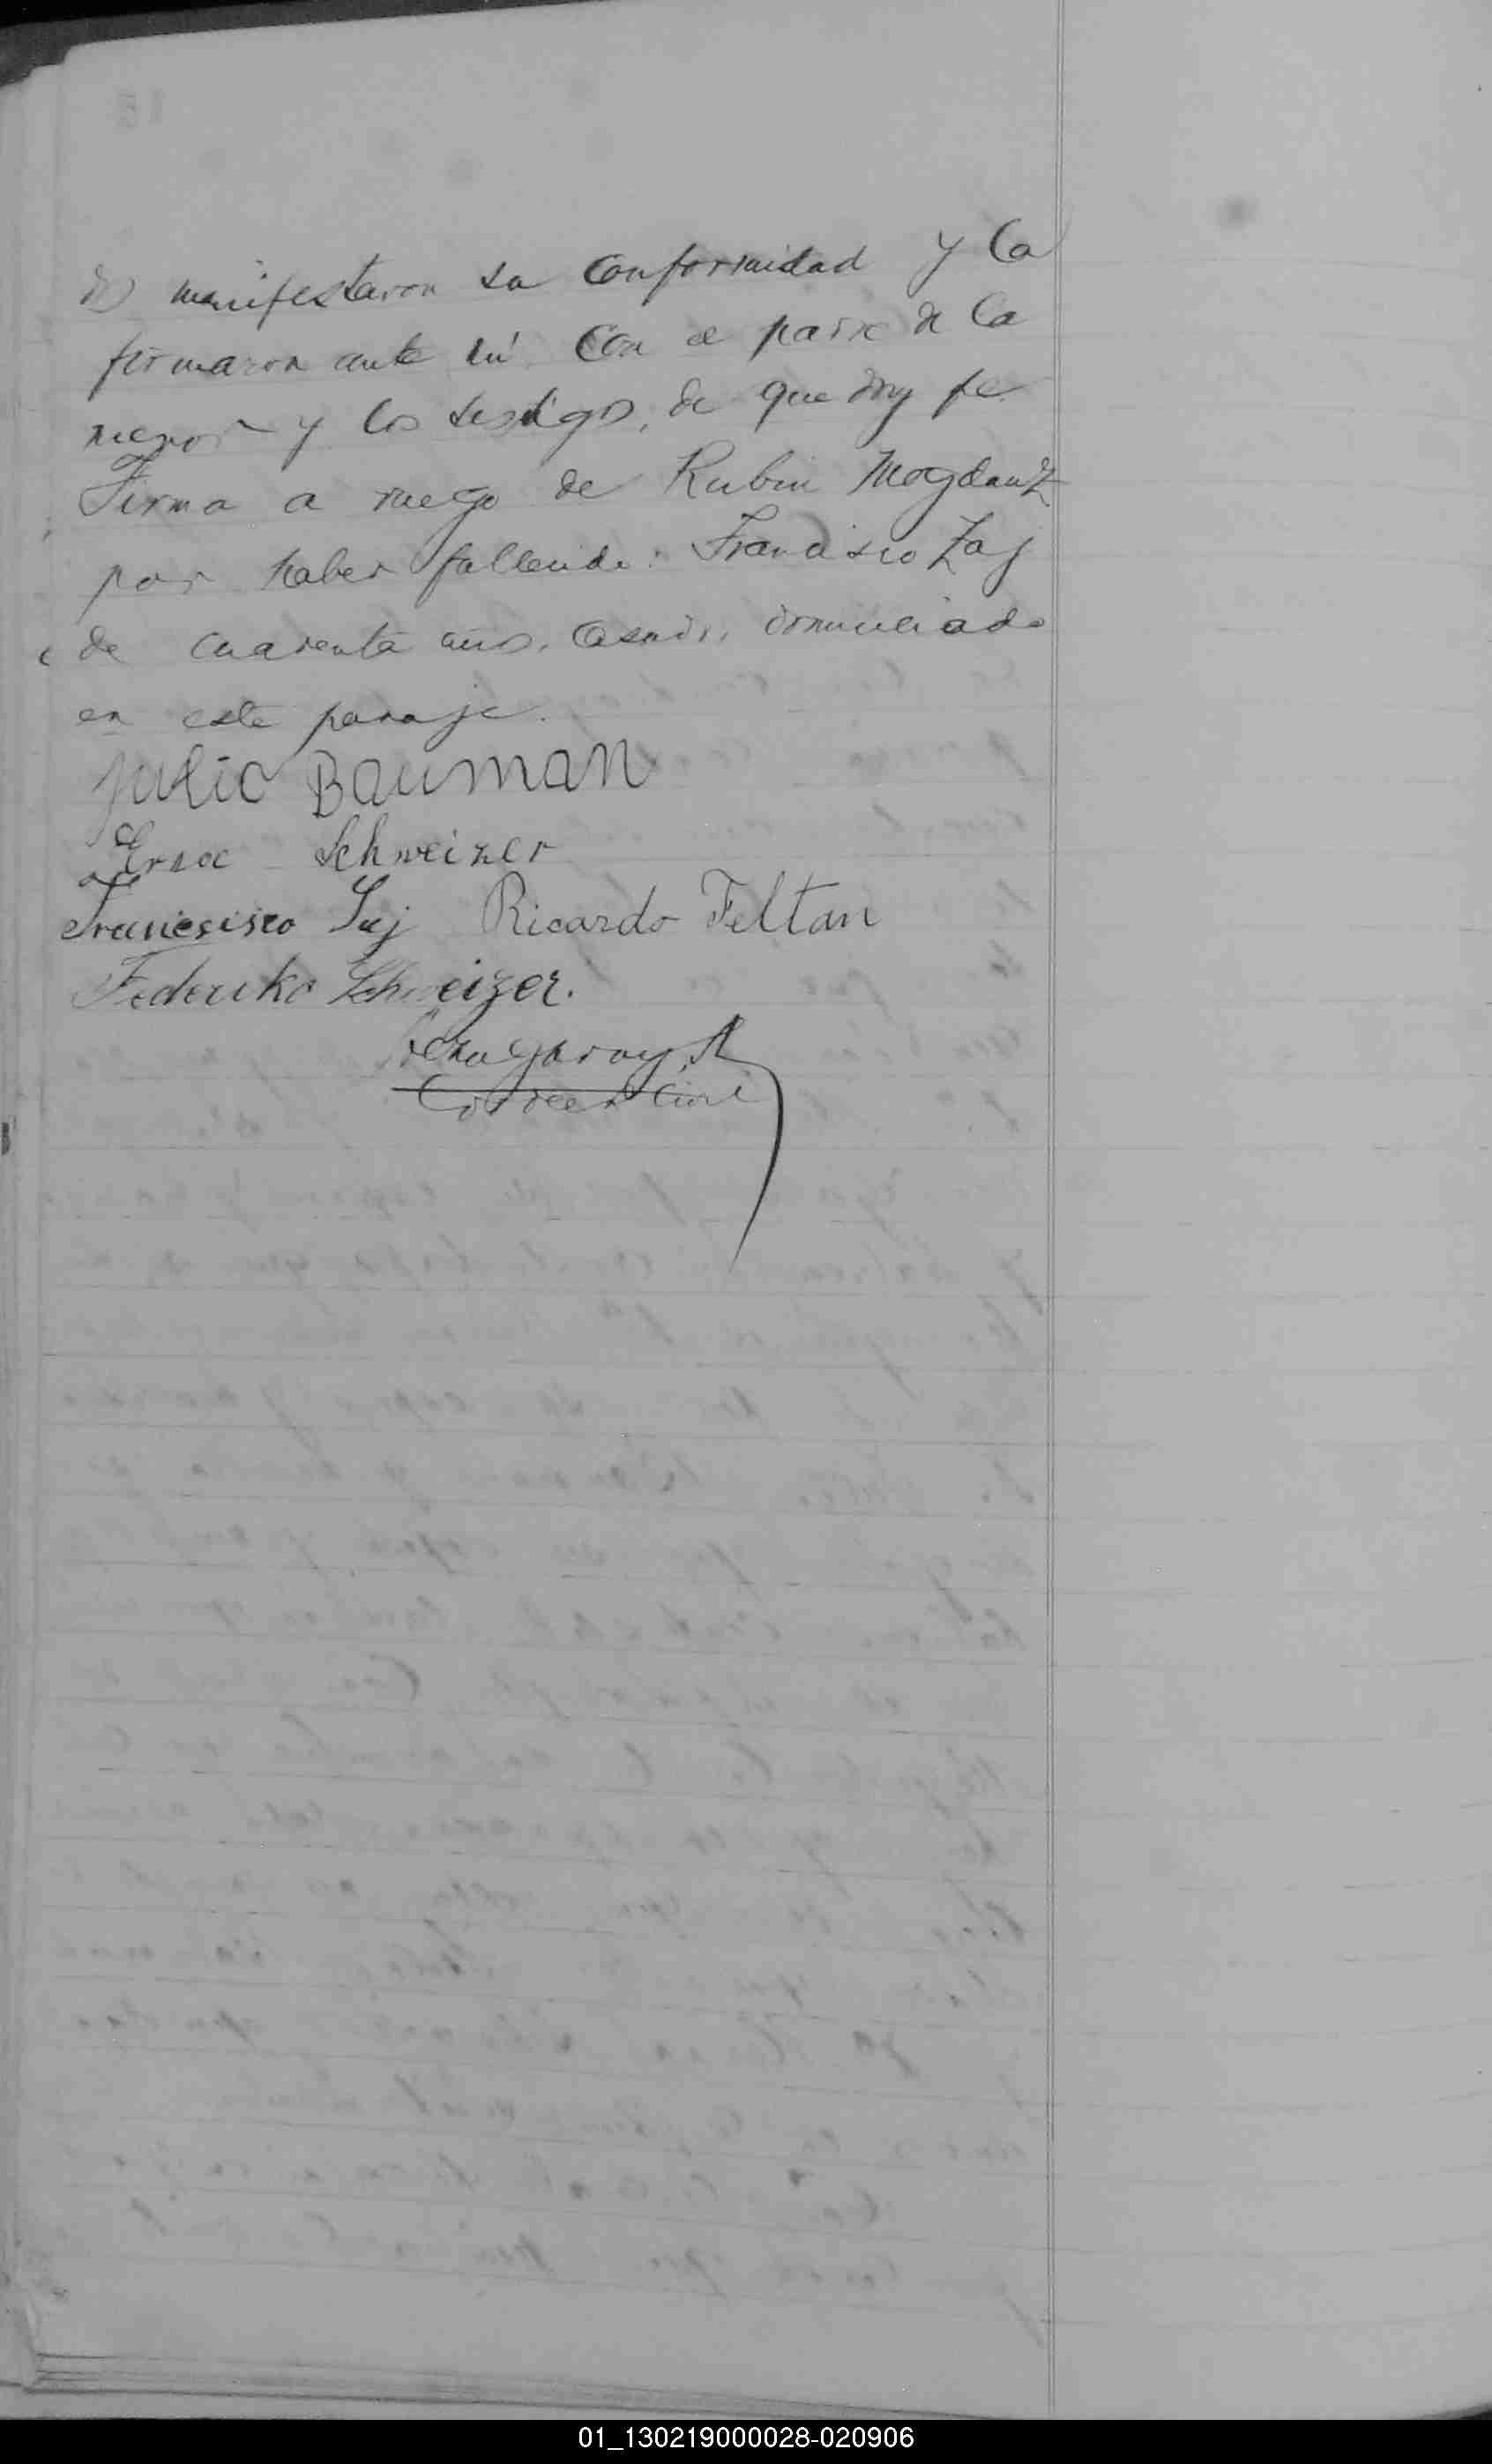 dos manifestaron su conformidad y la
firmaron ante mí con el padre de la
menor y los testigos, de que doy fe.
Firma a ruego de Rubin Mogdantz
por haber fallecido: Francisco Zaj
de cuarenta años, casado, domiciliado
en este paraje.
Julio Bauman
Schweizer
Francisisco Saj Ricardo Feltan
Federiko Schweizer.
01_130219000028-020906